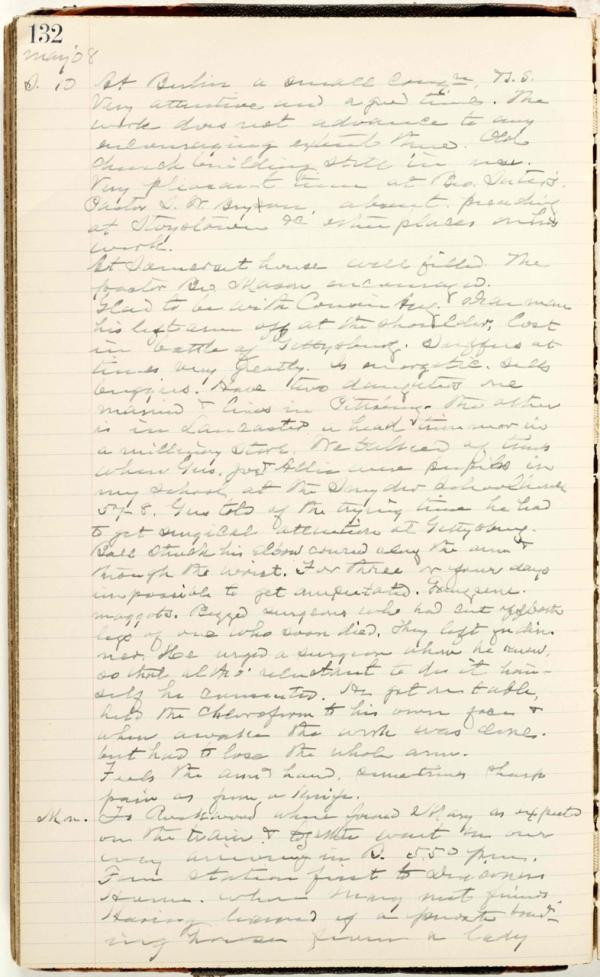 132
May '08
S. 10 At Berlin a small congn, B.S.
Very attentive and a good time. The
work does not advance to any
encouraging extent there. Old
church building still in use.
Very pleasant time at Bro.
Pastor S. W. absent, preaching
at Stoystown &c other places on his
work.
At Somerset house well filled. The
pastor Bro Mason encouraged.
Glad to be with Cousin Aug. & dear
his left arm off at the shoulder, lost
in battle of Gettysburg. Suffers at
times very greatly. Is energetic. Sells
buggies. Have two daughters one
married & lives in Pittsburg. The other
is in Lancaster a head trimmer in
a millinery store. We talked of times
when Gus, and Allie were pupils in
my school, at the Snyder schoolhouse
57-8. Gus told of the trying time he had
to get surgical attention at Gettysburg.
Ball struck his elbow coursed along the arm &
through the wrist. For three or four days
impossible to get amputated. Gangrene.
maggots. Begged surgeons who had cut off both
legs of one who soon died. They left for din-
ner. He urged a surgeon whom he knew,
so that altho' reluctant to do it him-
self he consented. He got on table,
held the chloroform to his own face &
when awake the work was done.
but had to lose the whole arm.
Feels the arm & hand, sometimes sharp
pain as from a knife.
Mon. To Rockwood where found Mary as expected
on the train & together went on our
way arriving in B. 5.50 p.m.
From station first to Deaconess
Home. where Mary met friends.
Having learned of a private board-
ing house from a lady